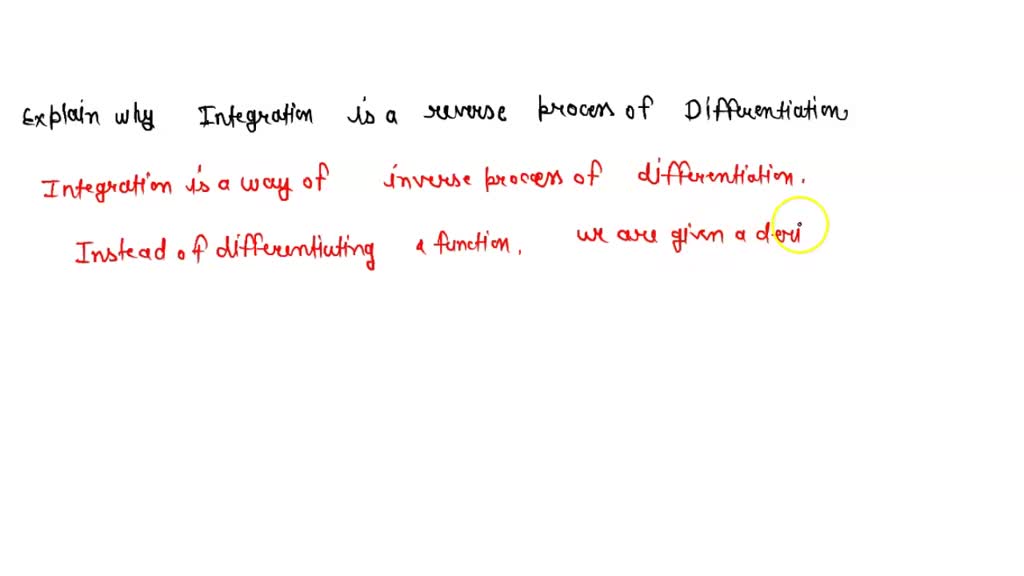 Explain why Integration is a reverse process of Differentiation
Integration is a way of inverse process of differentiation.
Instead of differentiating a function, we are given a deri